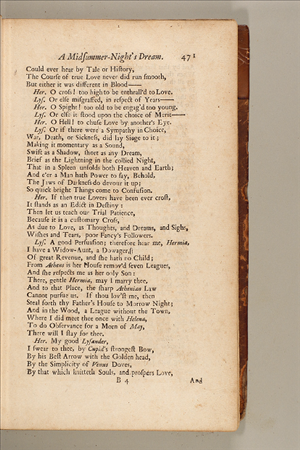 A Midsummer-Night's Dream. 471
Could ever hear by Tale or History,
The Course of true Love never did run smooth,
But either it was different in Blood——
Her. O cross! too high to be enthrall'd to Love.
Lys. Or else misgraffed, in respect of Years——
Her. O Spight! too old to be engag'd too young.
Lys. Or else it stood upon the choice of Merit——
Her. O Hell! to chuse Love by another's Eye.
Lys. Or if there were a Sympathy in Choice,
War, Death, or Sickness, did lay Siege to it;
Making it momentary as a Sound,
Swift as a Shadow, short as any Dream,
Brief as the Lightning in the collied Night,
That in a Spleen unfolds both Heaven and Earth;
And e'er a Man hath Power to say, Behold,
The Jaws of Darkness do devour it up;
So quick bright Things come to Confusion.
Her. If then true Lovers have been ever crost,
It stands as an Edict in Destiny:
Then let us teach our Trial Patience,
Because it is a customary Cross,
As due to Love, as Thoughts, and Dreams, and Sighs,
Wishes and Tears, poor Fancy's Followers.
Lys. A good Perswasion; therefore hear me, Hermia,
I have a Widow-Aunt, a Dowager,
Of great Revenue, and she hath no Child;
From Athens is her House remov'd seven Leagues,
And she respects me as her only Son:
There, gentle Hermia, may I marry thee,
And to that Place, the sharp Athenian Law
Cannot pursue us. If thou lov'st me, then
Steal forth thy Father's House to Morrow Night;
And in the Wood, a League without the Town,
Where I did meet thee once with Helena,
To do Observance for a Morn of May,
There will I stay for thee.
Her. My good Lysander,
I swear to thee, by Cupid's strongest Bow,
By his Best Arrow with the Golden head,
By the Simplicity of Venus Doves,
By that which knitteth Souls, and prospers Love,
B 4 And